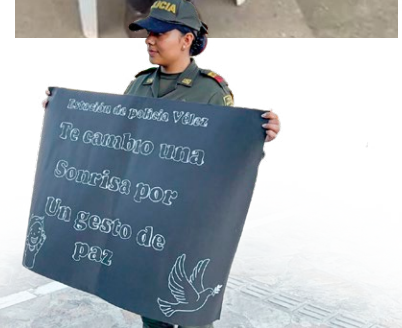 POLICIA
Estación de policía Vélez
Te cambio una
Sonrisa por
Un gesto de
paz